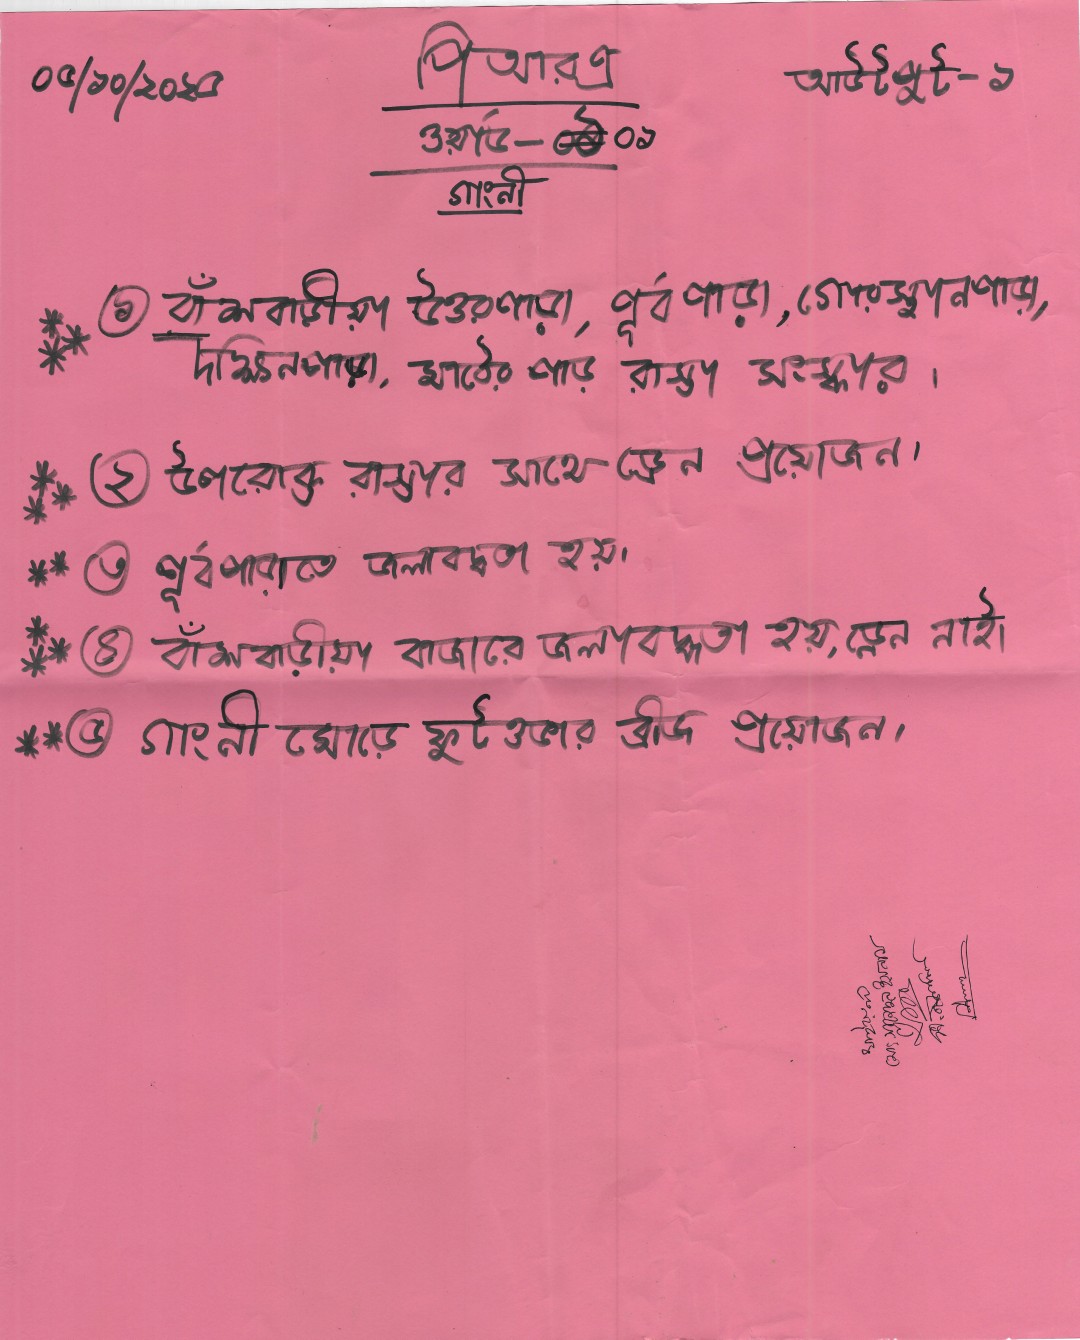 ০৫/১০/২০২৫
পিআরএ
আউটপুট-১
ওয়ার্ড- ০১
গাংনী
১ বাঁশবাড়ীয়া উত্তরপাড়া, পূর্বপাড়া, গোরস্থানপাড়া,
দক্ষিনপাড়া, মাঠের পাড় রাস্তা সংস্কার।
২ উপরোক্ত রাস্তার সাথে ড্রেন প্রয়োজন।
৩ পূর্বপারাতে জলাবদ্ধতা হয়।
৪ বাঁশবাড়ীয়া বাজারে জলাবদ্ধতা হয়, ড্রেন নাই।
৫ গাংনী মোড়ে ফুটওভার ব্রীজ প্রয়োজন।